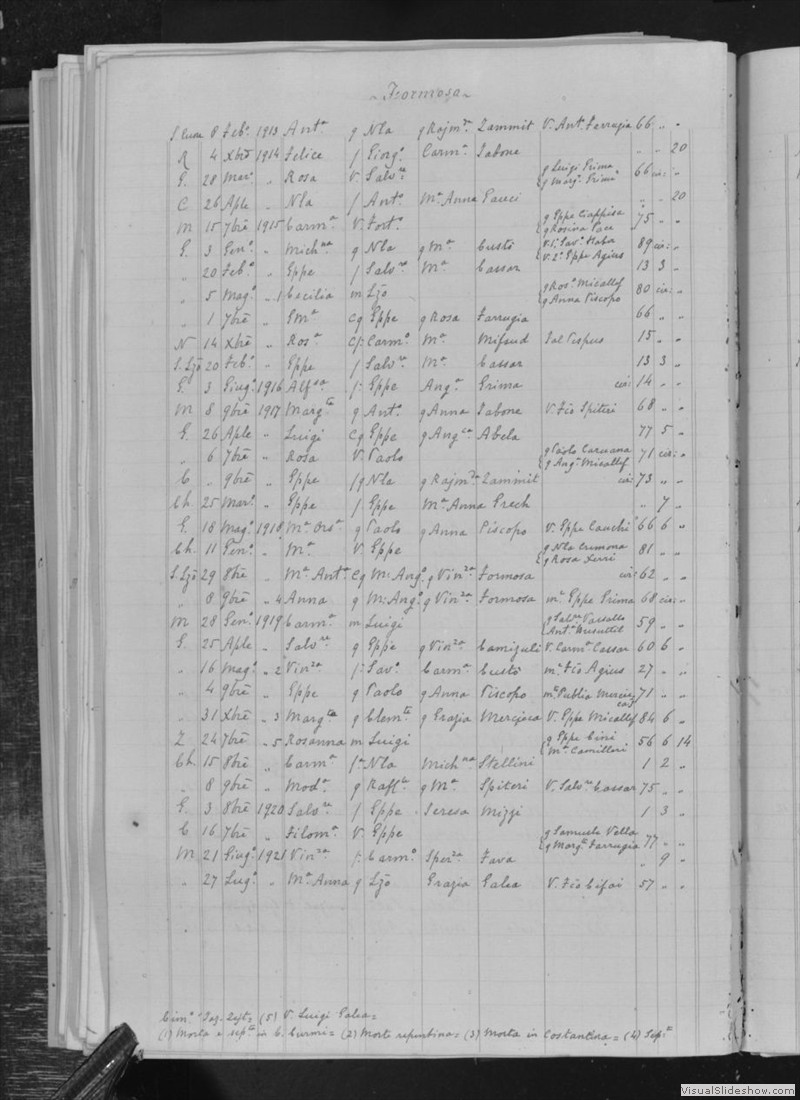 Formosa
S. Luca 8 Feb.º 1913 Ant.ª g Nla g Rajm.da Zammit V. Ant. Farrugia 66 " "
R 4 Xbrē 1914 Felice f Giorg.º Carm.ª Tabone " " 20
G. 28 Mar.º " Rosa V. Salv.re { g Luigi Grima g Marg.ª Grima 66 cir: "
C 26 Aple " Nla f Ant.º M.ª Anna Gauci " " 20
M 15 7brē 1915 Carm.ª V. Fort.º { g Eppe Ciappisa g Rosina Pace 75 " "
G. 3 Gen.º " Mich.na g Nla g M.ª Custò V. 1.º Sav.º V. 2.º Eppe Agius 89 cir: "
" 20 Feb.º " Eppe f Salv.re M.ª Cassar 13 3 "
" 5 Mag.º " 1 Cecilia m Lzo { g Ros.º Micallef g Anna Piscopo 80 cir: "
" 1 7brē " G M.ª cg Eppe g Rosa Farrugia 66 " "
N 14 Xbrē " Ros.ª cf: Carm.º M.ª Mifsud Dal Vespus 15 " "
S. Lzo 20 Feb.º " Eppe f Salv.re M.ª Cassar 13 3 "
G. 3 Giug.º 1916 Alf.sa f: Eppe Ang.ª Grima cir: 14 " "
M 8 9brē 1917 Marg.ta g Ant.º g Anna Tabone V. Fco Spiteri 68 " "
G. 26 Aple " Luigi cg Eppe g Ang.ca Abela 77 5 "
" 6 7brē " Rosa V. Paolo { g Paolo Caruana g Ang.ª Micallef 71 cir: "
C " 9brē " Eppe fg Nla g Rajm.da Zammit cir: 73 " "
Ch. 25 Mar.º " Eppe f Eppe M.ª Anna Grech " 7 "
G. 18 Mag.º 1918 M.ª Ors.ª g Paolo g Anna Piscopo V. Eppe Cauchi 66 6 "
Ch. 11 Gen.º " M.ª V. Eppe { g Nla Cremona g Rosa Xerri 81 " "
S. Lzo 29 8brē " M.ª Ant.ª cg M: Ang.º g Vin.za Formosa cir: 62 " "
" 8 9brē " 4 Anna g M: Ang.º g Vin.za Formosa m.ª Eppe Grima 68 cir: "
M 28 Gen.º 1919 Carm.ª m Luigi { g Salv.re Vassallo Ant.ª Musuttil 59 " "
G. 25 Aple " Salv.re g Eppe g Vin.za Camizuli V. Carm.ª Cassar 60 6 "
" 16 Mag.º " 2 Vin.za f: Sav.º Carm.ª Custò m.º Fco Agius 27 " "
" 4 9brē " Eppe g Paolo g Anna Piscopo m.º Publia Mercieca 71 " "
" 31 Xbrē " 3 Marg.ta g Clem.te g Grazia Mercieca V. Eppe Micallef 84 6 "
Z 24 7brē " 5 Rosanna m Luigi { g Eppe Cini M.ª Camilleri 56 6 14
Ch. 15 8brē " Carm.ª f: Nla Mich.na Stellini 1 2 "
" 8 9brē " Mod.ª g Raff.le g M.ª Spiteri V. Salv.re Cassar 75 " "
G. 3 8brē 1920 Salv.re f Eppe Teresa Mizzi 1 3 "
C 16 7brē " Filom.ª V. Eppe { g Samuele Vella g Marg.ª Farrugia 77 " "
M 21 Giug.º 1921 Vin.za f: Carm.º Sper.za Fava " 9 "
" 27 Lug.º " M.ª Anna g Lzo Grazia Galea V. Fco Cifai 57 " "
(5) V. Luigi Galea =
(1) Morta e sep.ta in C. Curmi = (2) Morte repentina = (3) Morta in Costantina = (4) Sep.ta
VisualSlideshow.com